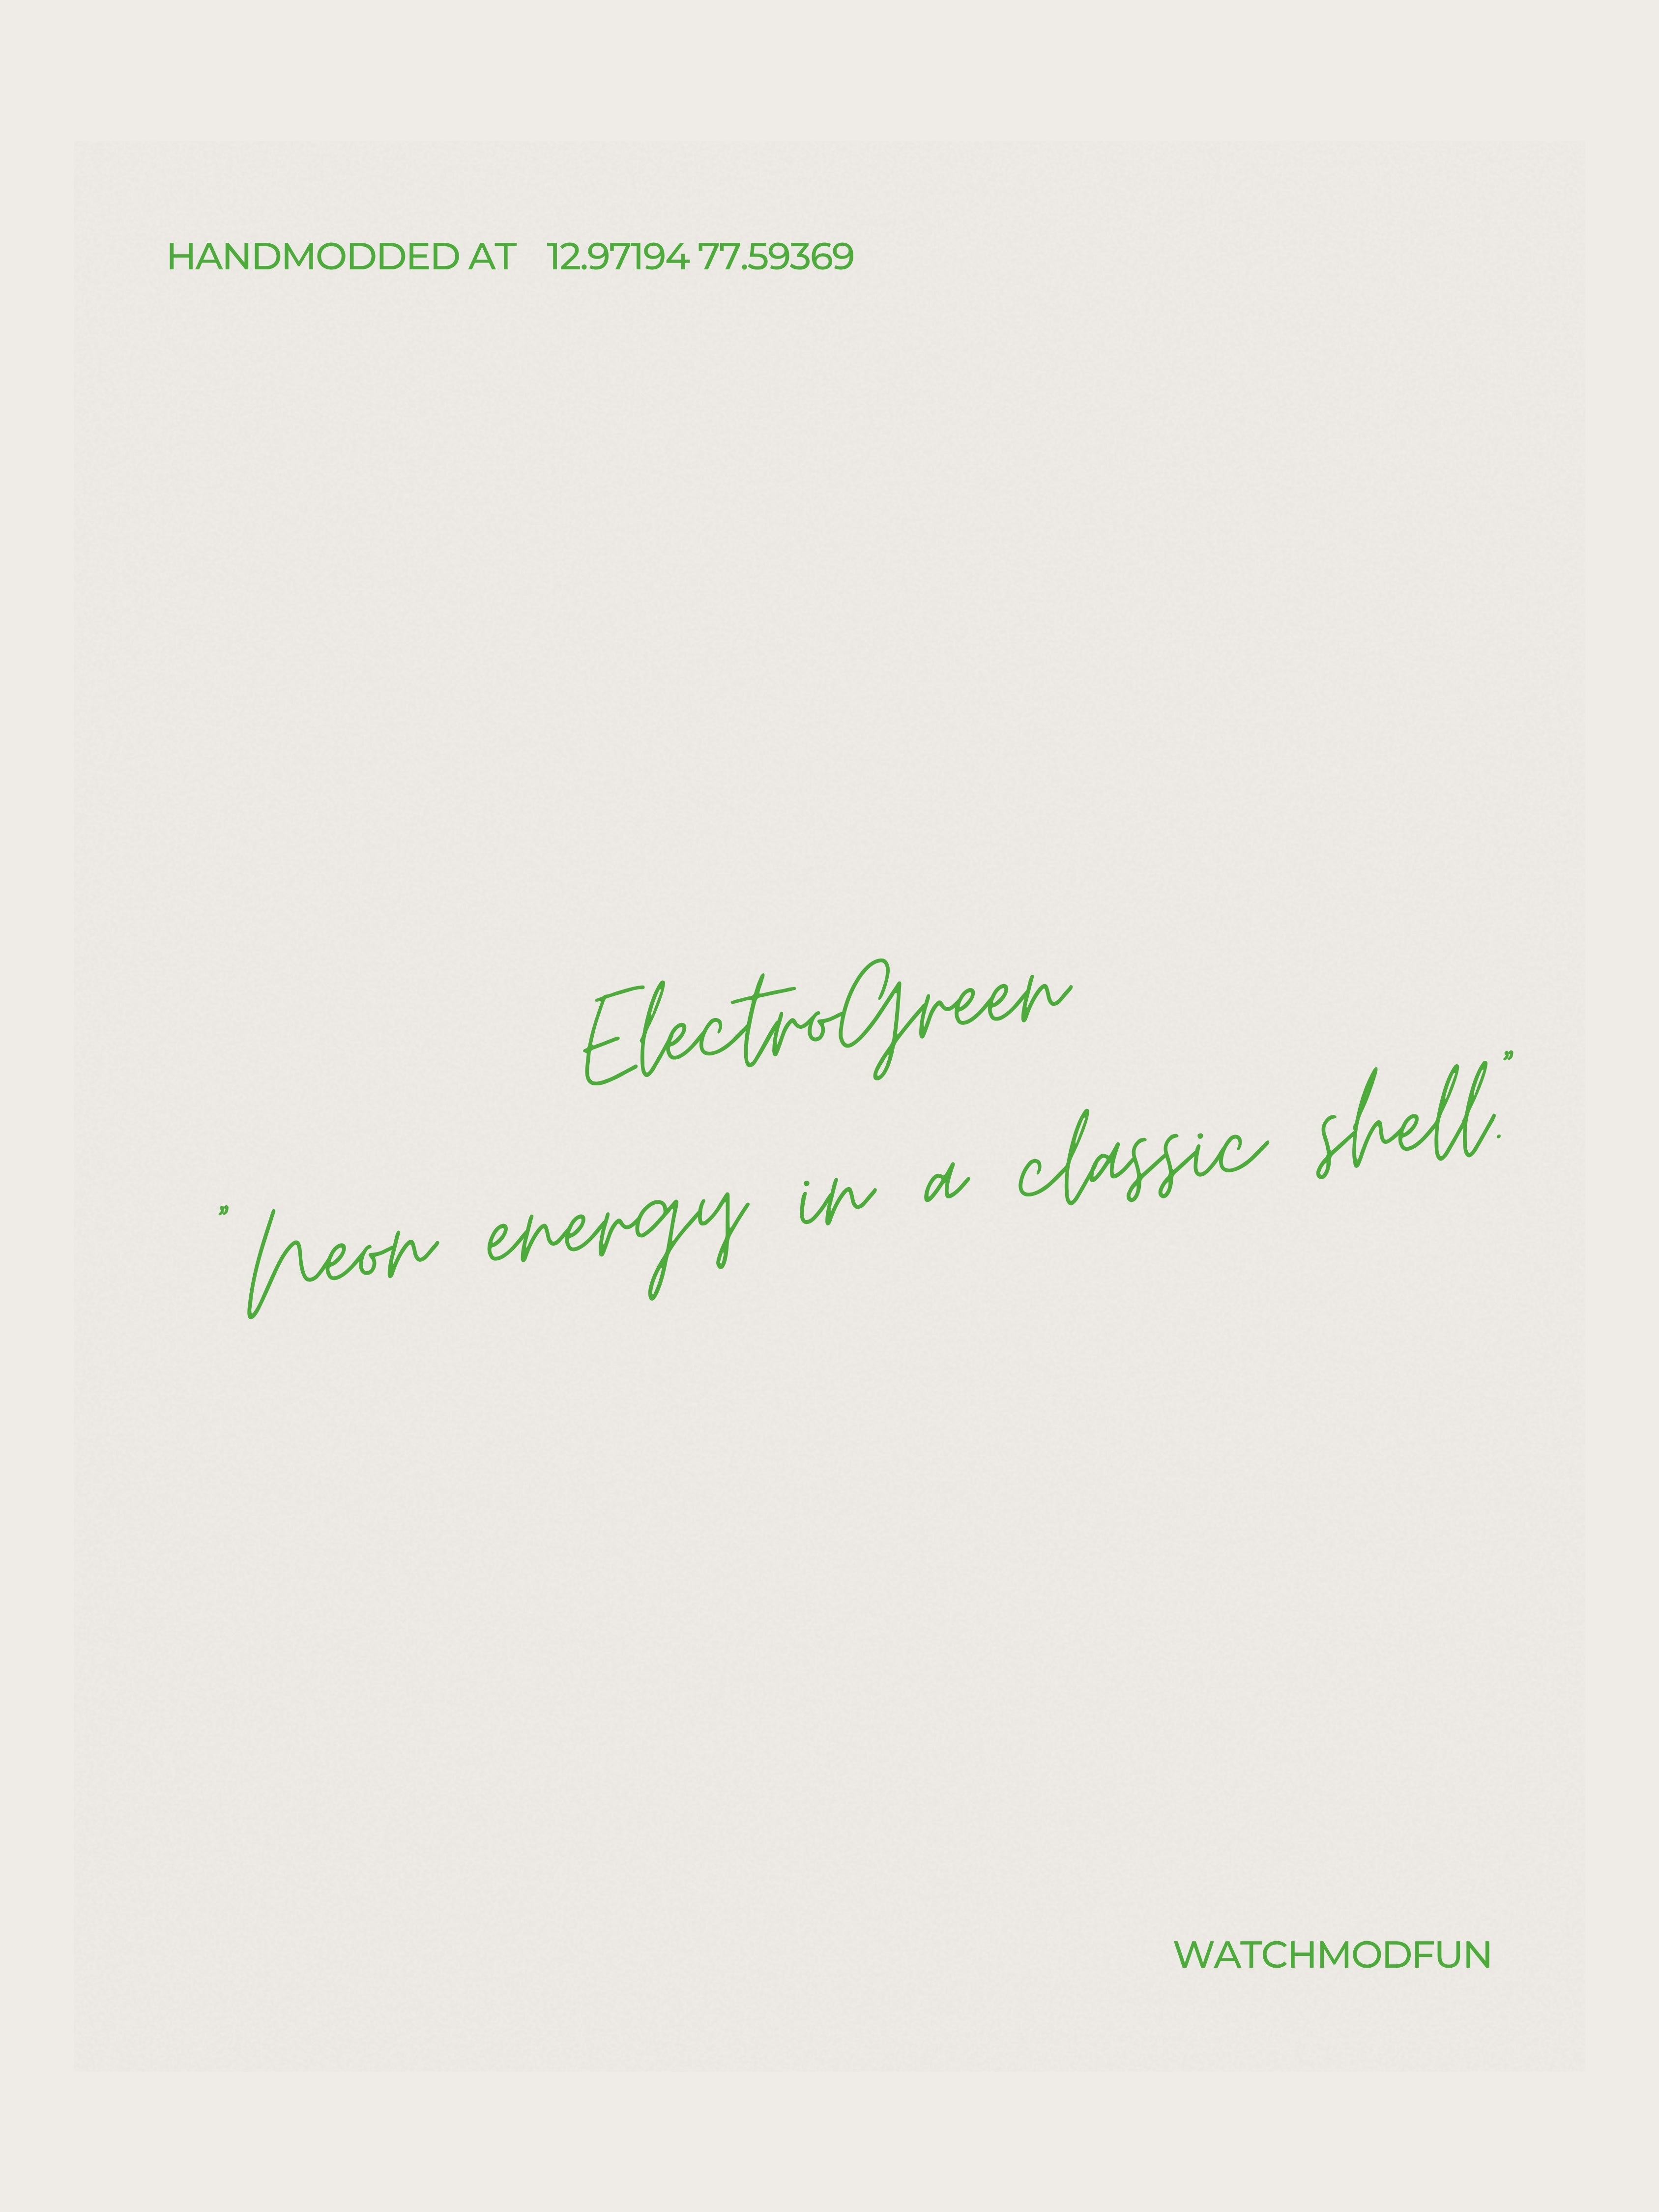 HANDMODDED AT 12.97194 77.59369
ElectroGreen
"Neon energy in a classic shell."
WATCHMODFUN